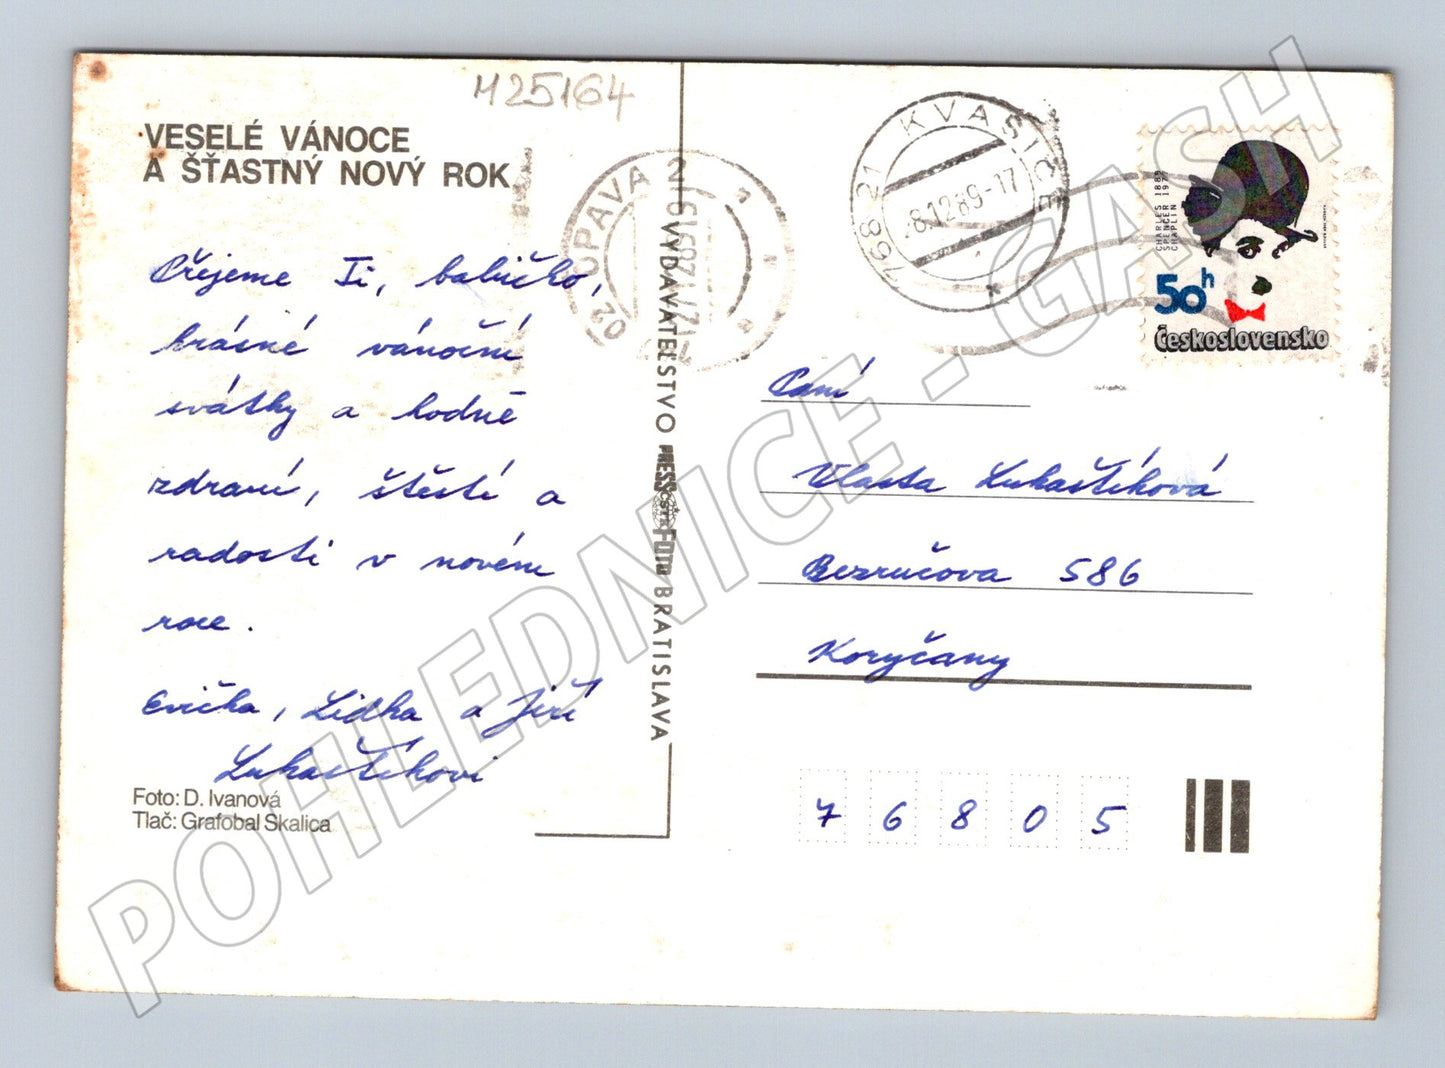 M25164
VESELÉ VÁNOCE
A ŠŤASTNÝ NOVÝ ROK
Přejeme Ti, babičko,
krásné vánoční
svátky a hodně
zdraví, štěstí a
radosti v novém
roce.
Evička, Lidka a Jiří
Lukaštíkovi
Foto: D. Ivanová
Tlač: Grafobal Skalica
VYDAVATEĽSTVO PRESSFOTO BRATISLAVA
OPAVA 2
02
768 21 KVASICE
8.12.89-17
CHARLES 1889
SPENCER 1977
CHAPLIN
50h
Československo
Paní
Vlasta Lukaštíková
Bezručova 586
Koryčany
76805
POHLEDNICE - GASH